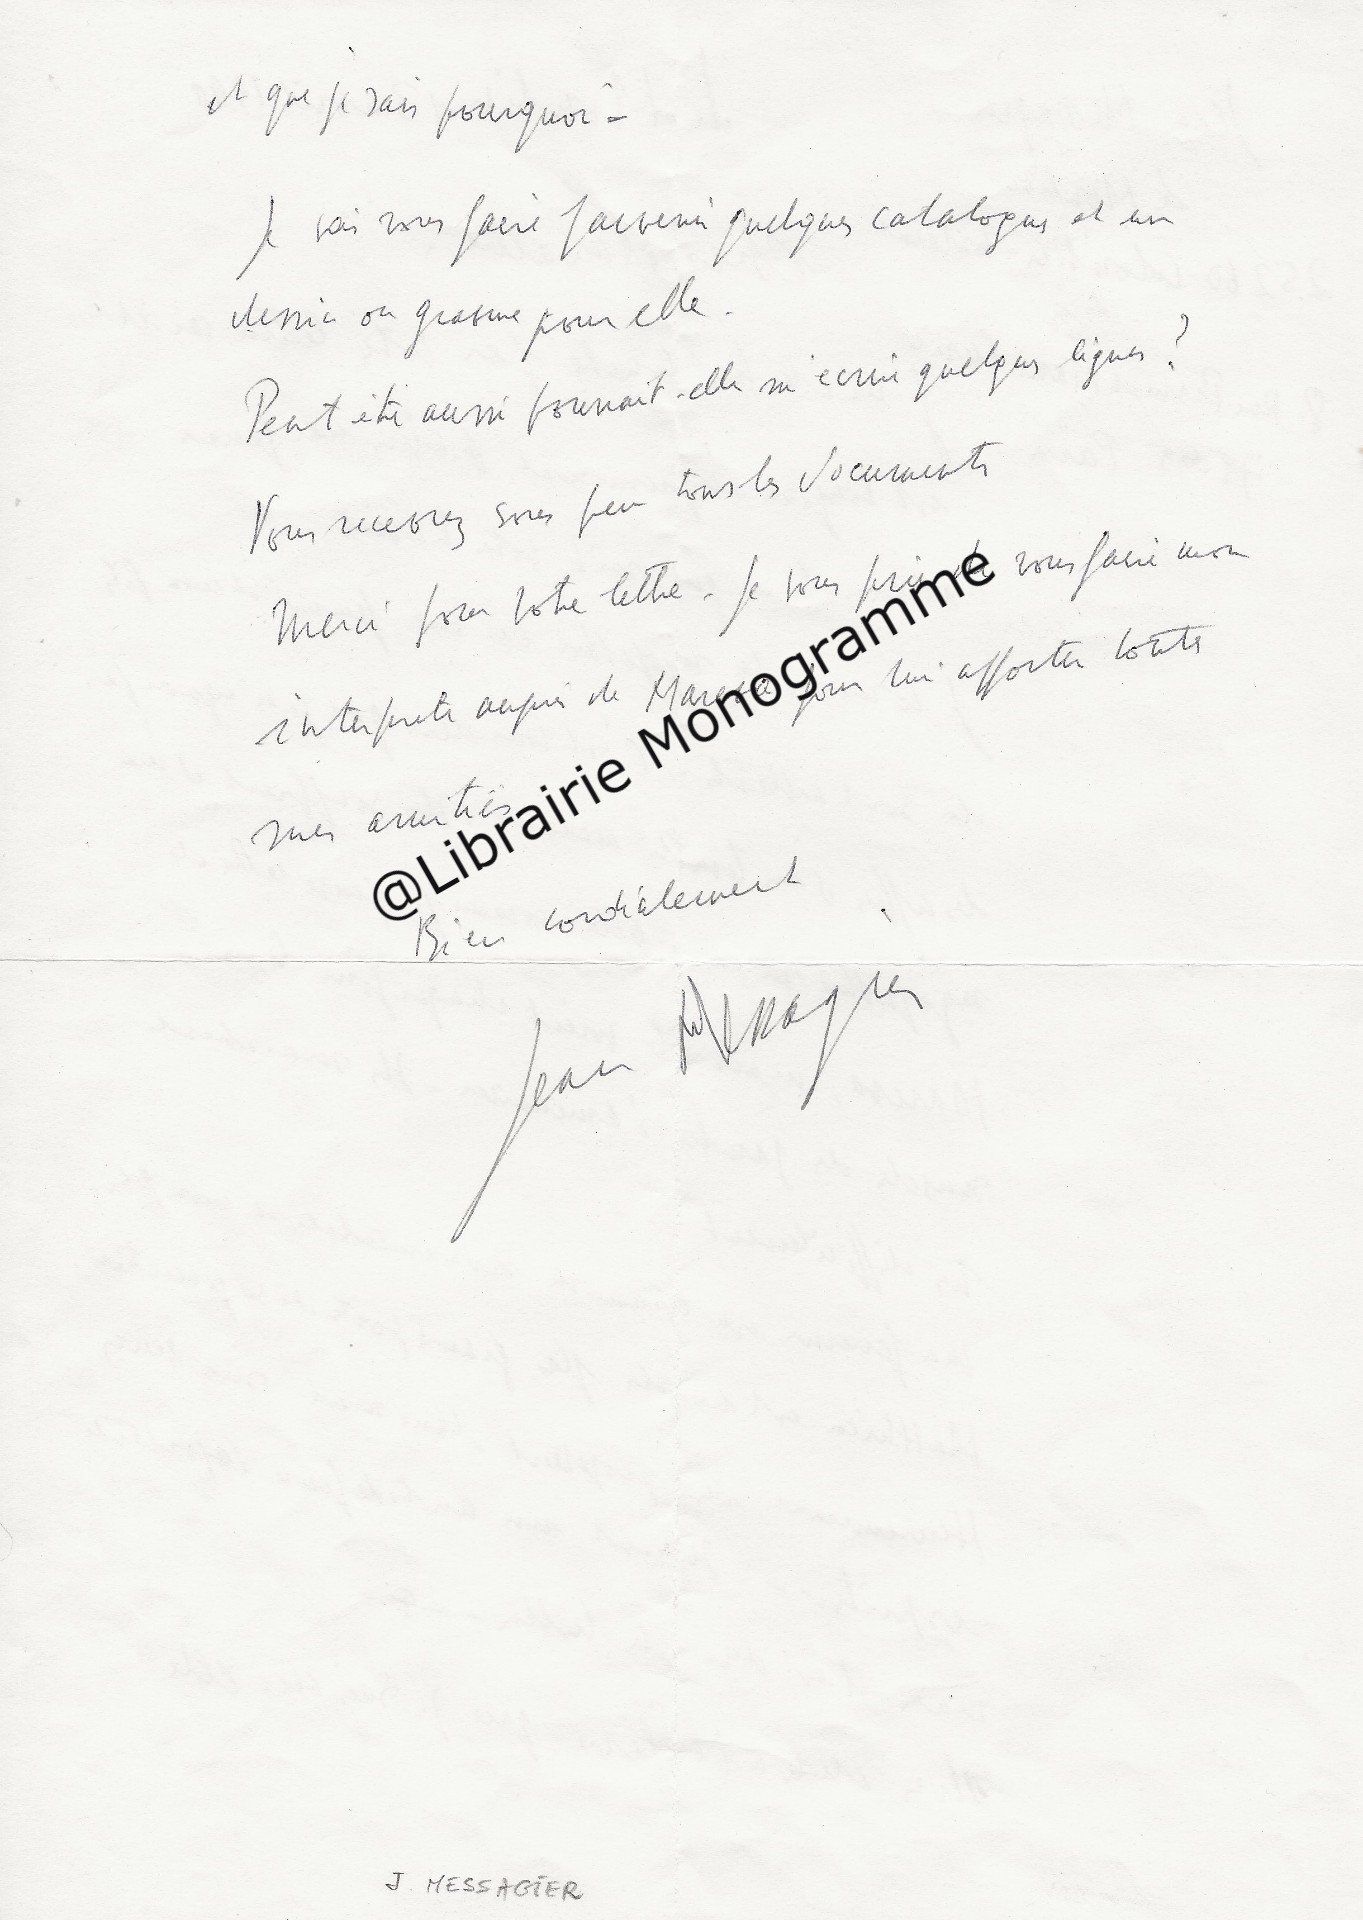 et que je sais pourquoi -
Je vais vous faire parvenir quelques catalogues et un
dessin ou gravure pour elle.
Peut être aussi pourrait-elle m'écrire quelques lignes ?
Vous recevrez sous peu tous les documents
Merci pour votre lettre - Je vous prie de vous faire mon
interprète auprès de pour lui apporter toutes
mes amitiés
Bien cordialement
Jean Messagier
J. MESSAGIER
@Librairie Monogramme